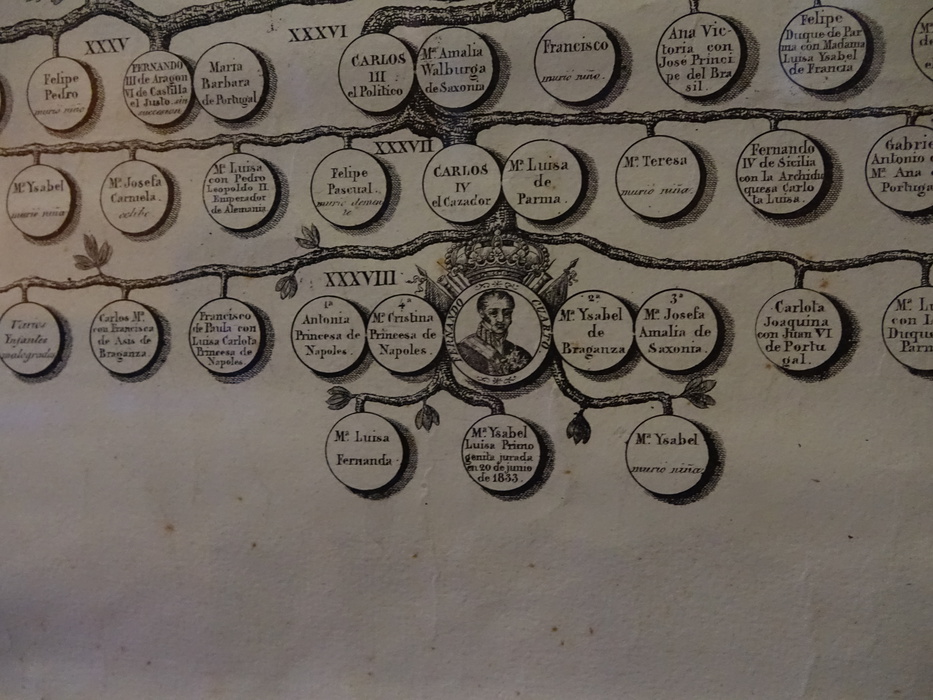 XXXV
XXXVI
Felipe
Pedro
murió niño
FERNANDO
III de Aragon
VI de Castilla
el Justo sin
succession
Maria
Barbara
de Portugal
CARLOS
III
el Politico
Mª Amalia
Walburga
de Saxonia
Francisco
murió niño.
Ana Vic-
toria con
José Princi
pe del Bra
sil.
Felipe
Duque de Par
ma con Madama
Luisa Ysabel
de Francia
XXXVII
Mª Ysabel
murió niña
Mª Josefa
Carmela.
celibe
Mª Luisa
con Pedro
Leopoldo II
Emperador
de Alemania
Felipe
Pascual.
murió demen
te
CARLOS
IV
el Cazador
Mª Luisa
de
Parma.
Mª Teresa
murió niña
Fernando
IV de Sicilia
con la Archidu
quesa Carlo
ta Luisa.
Gabrie
Antonio
Mª Ana
Portuga
XXXVIII
Varios
Ynfantes
malogrados
Carlos Mª
con Francisca
de Asis de
Braganza.
Francisco
de Paula con
Luisa Carlota
Princesa de
Napoles.
1ª
Antonia
Princesa de
Napoles.
4ª
Mª Cristina
Princesa de
Napoles.
FERNANDO
2ª
Mª Ysabel
de
Braganza
3ª
Mª Josefa
Amalia de
Saxonia.
Carlota
Joaquina
con Juan VI
de Portu
gal.
Mª Lu
con L
Duque
Parm
Mª Luisa
Fernanda
Mª Ysabel
Luisa Primo
genita jurada
en 20 de junio
de 1833.
Mª Ysabel
murió niña